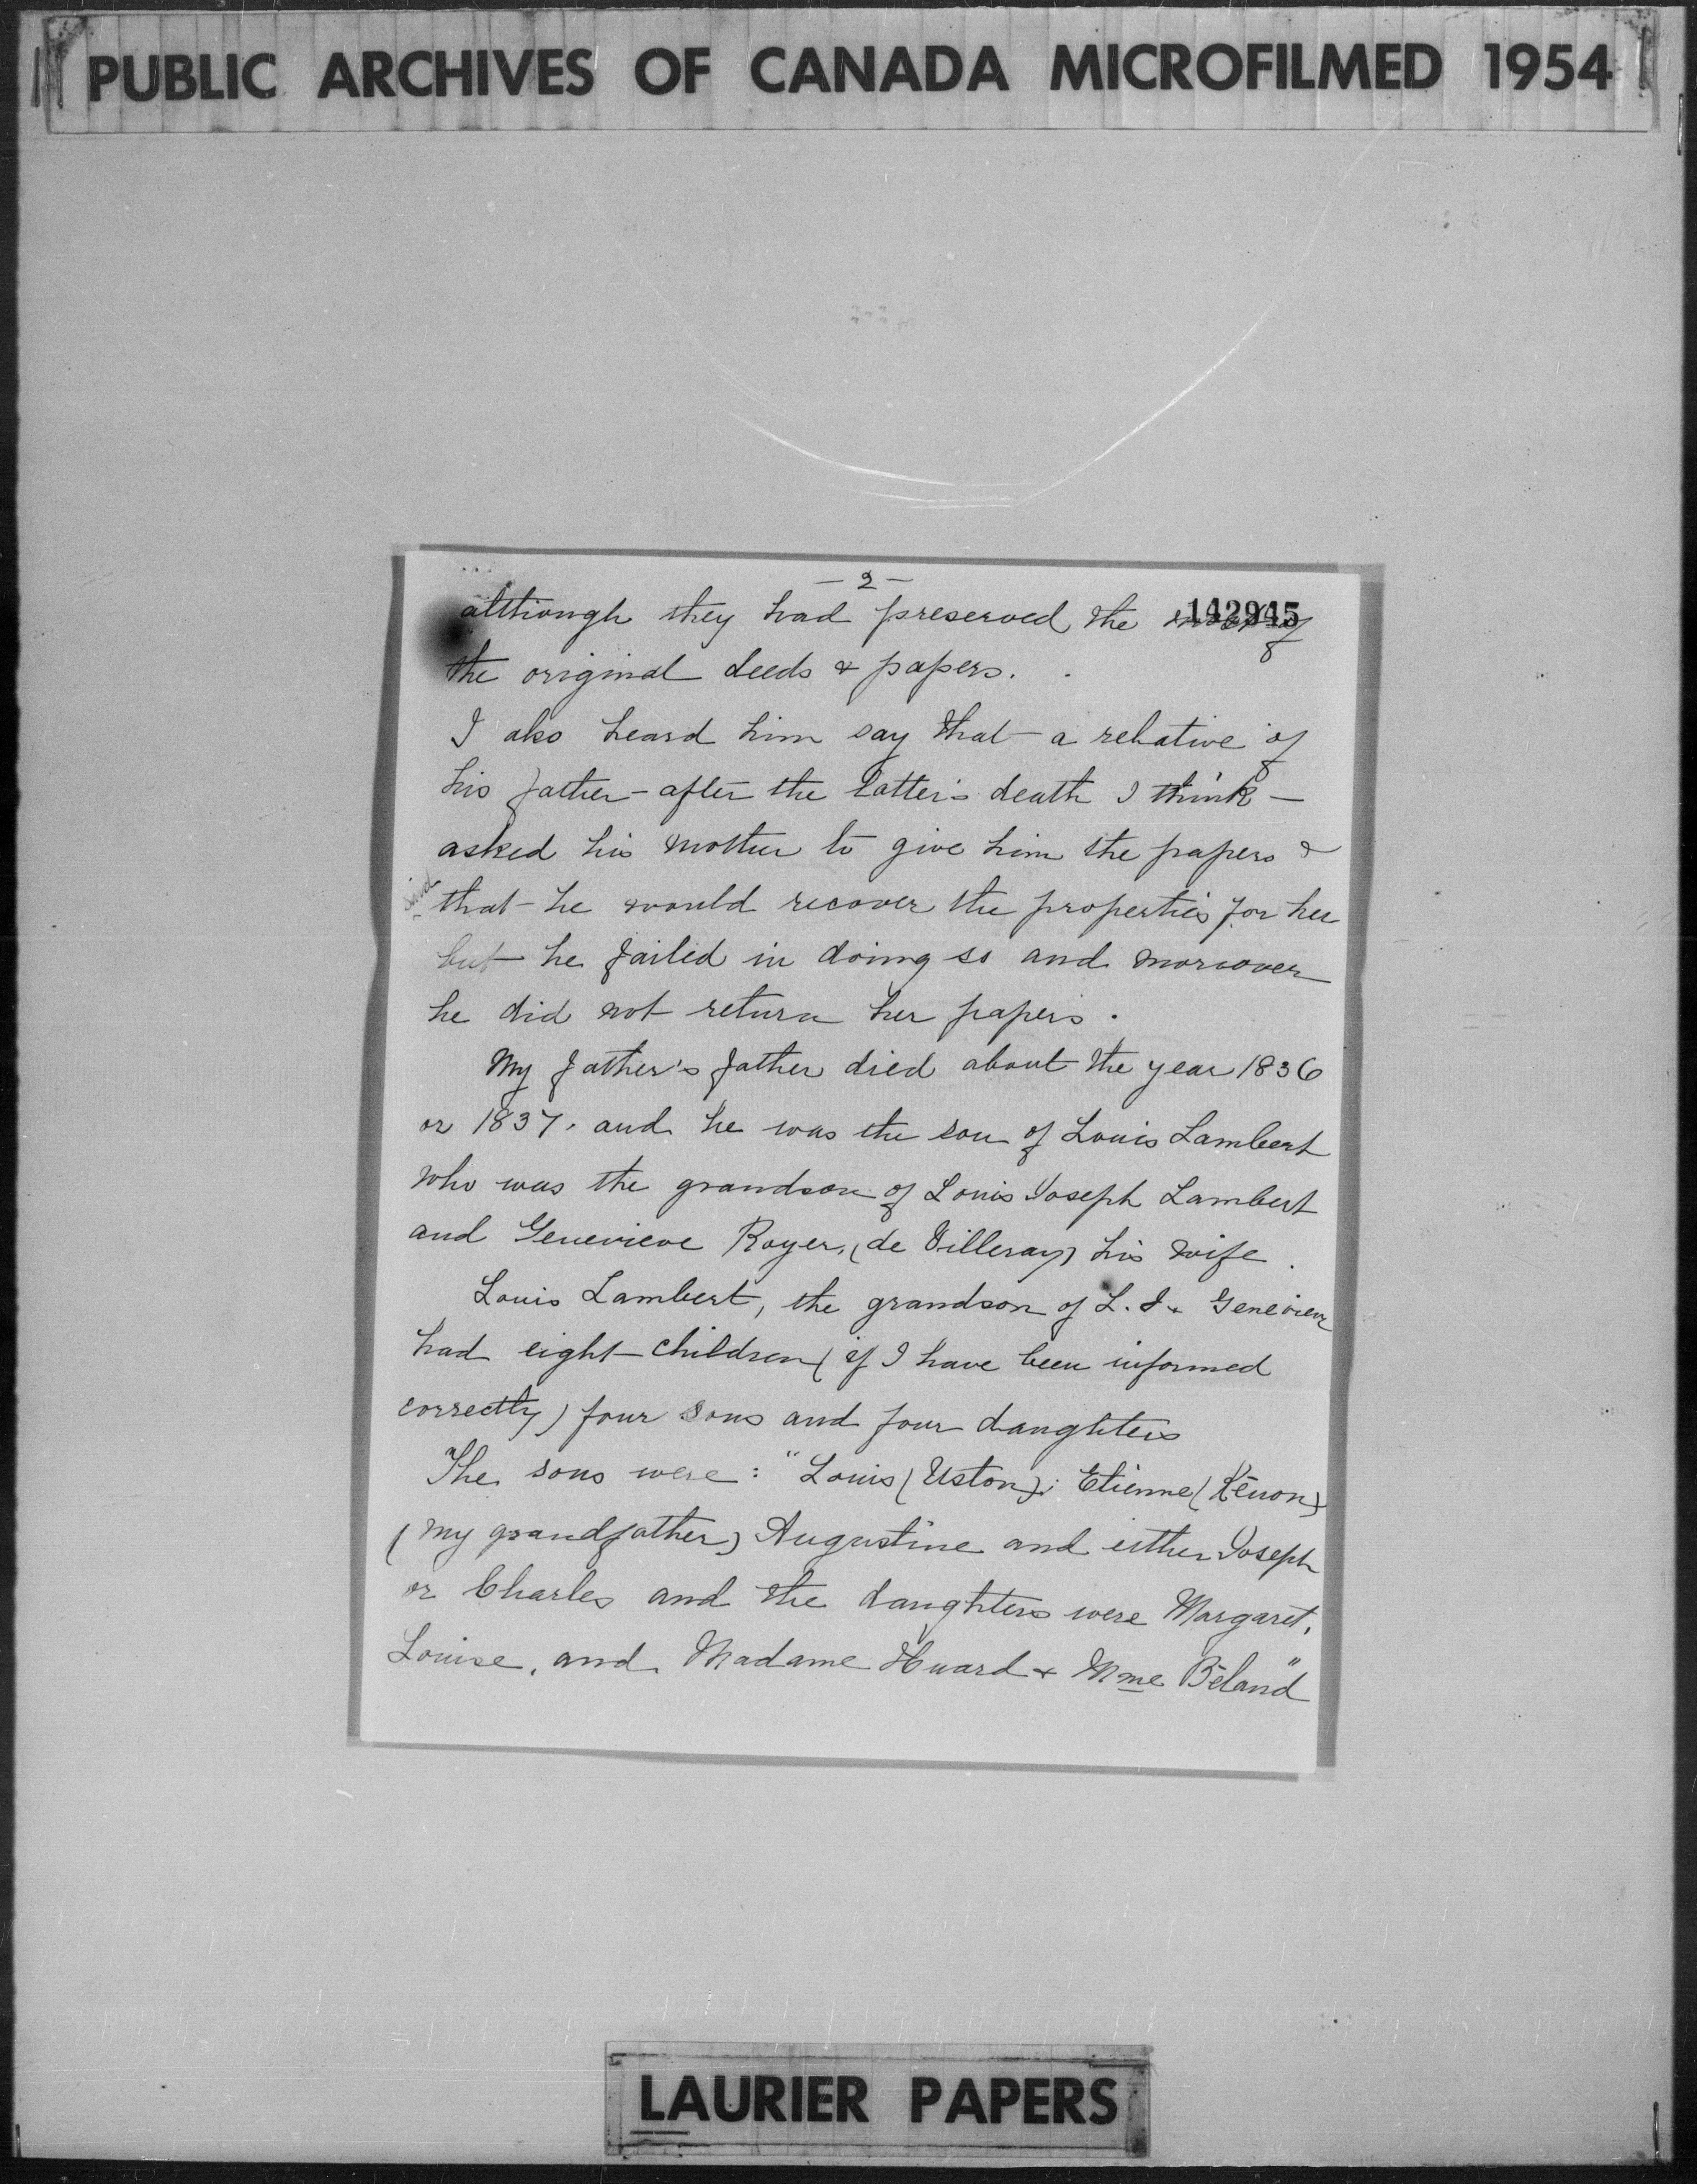 PUBLIC ARCHIVES OF CANADA MICROFILMED 1954
— 2 —
142945
although they had preserved the of
the original deeds & papers.
I also heard him say that a relative of
his father – after the latter's death I think –
asked his mother to give him the papers &
said
that he would recover the properties for her
but he failed in doing so and moreover
he did not return her papers.
My father's father died about the year 1836
or 1837. and he was the son of Louis Lambert
who was the grandson of Louis Joseph Lambert
and Genevieve Royer, (de Villeray) his wife.
Louis Lambert, the grandson of L. J. & Genevieve
had eight children (if I have been informed
correctly) four sons and four daughters
The sons were: "Louis (Uston); Etienne (Kénon)
(my grandfather) Augustine and either Joseph
or Charles and the daughters were Margaret,
Louise, and Madame Huard & Mme Béland"
LAURIER PAPERS